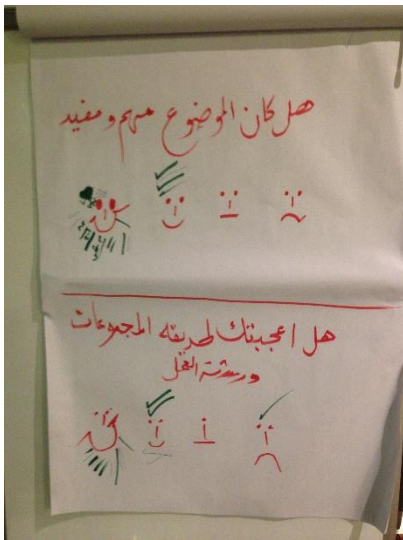 هل كان الموضوع مهم ومفيد
هل اعجبتك طريقه المجموعات
ورشة العمل